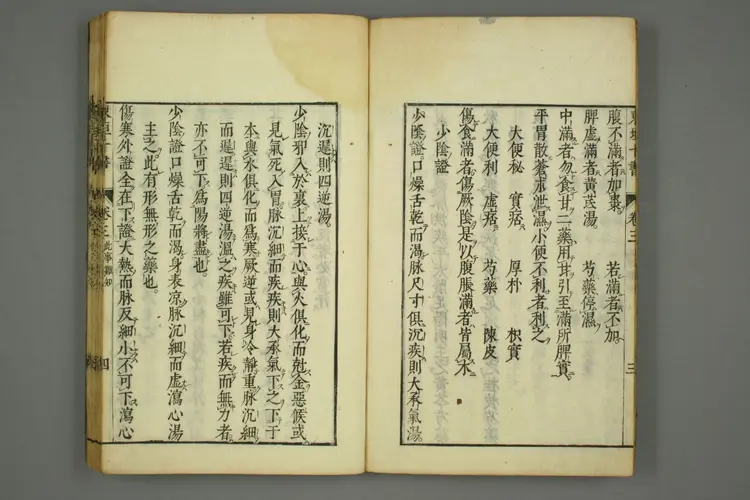 腹不滿者加棗 若滿者不加
脾虛滿者黃芪湯 芍藥停濕
中滿者勿食甘二藥用甘引至滿所脾實
平胃散蒼朮泄濕小便不利者利之
大便秘 實痞 厚朴 枳實
大便利 虛痞 芍藥 陳皮
傷食滿者傷厥陰是以腹脹滿者皆屬木
少陰證
少陰證口燥舌乾而渴脈尺寸俱沉疾則大承氣湯
沉遲則四逆湯
少陰邪入於裏上接于心與火俱化而尅金惡候或
見氣死入胃脈沉細而疾疾則大承氣下之下于
本與水俱化而爲寒厥逆或見身冷靜重脈沉細
而遲遲則四逆湯溫之疾雖可下若疾而無力者
亦不可下爲陽將盡也
少陰證口燥舌乾而渴身表凉脈沉細而虛瀉心湯
主之此有形無形之藥也
傷寒外證全在下證大熱而脈反細小不可下瀉心
東垣十書 卷三 此事難知 四
東垣十書 卷三 三